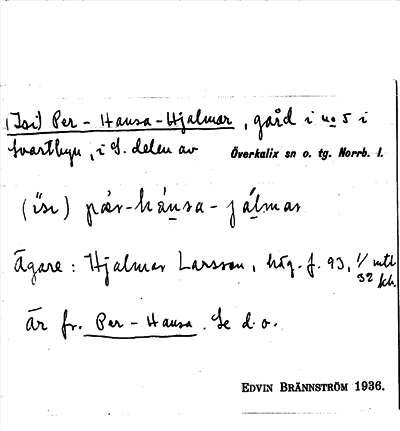 (Isi) Per-Hansa-Hjalmar, gård i no 5 i
Svartbyn, i S. delen av Överkalix sn o. tg. Norrb. l.
(ı̋sı) pær-hánsa-jálmar
Ägare: Hjalmar Larsson, f. 93, 1/32 mtl
Är fr. Per-Hansa. Se d. o.
EDVIN BRÄNNSTRÖM 1936.